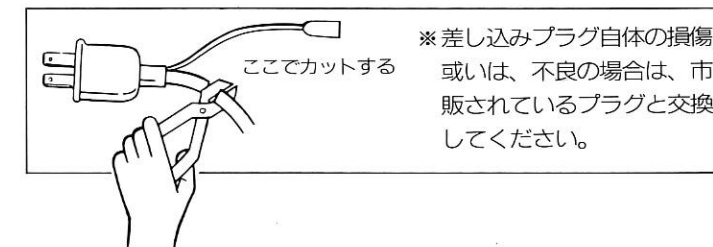 ここでカットする
※差し込みプラグ自体の損傷
或いは、不良の場合は、市
販されているプラグと交換
してください。